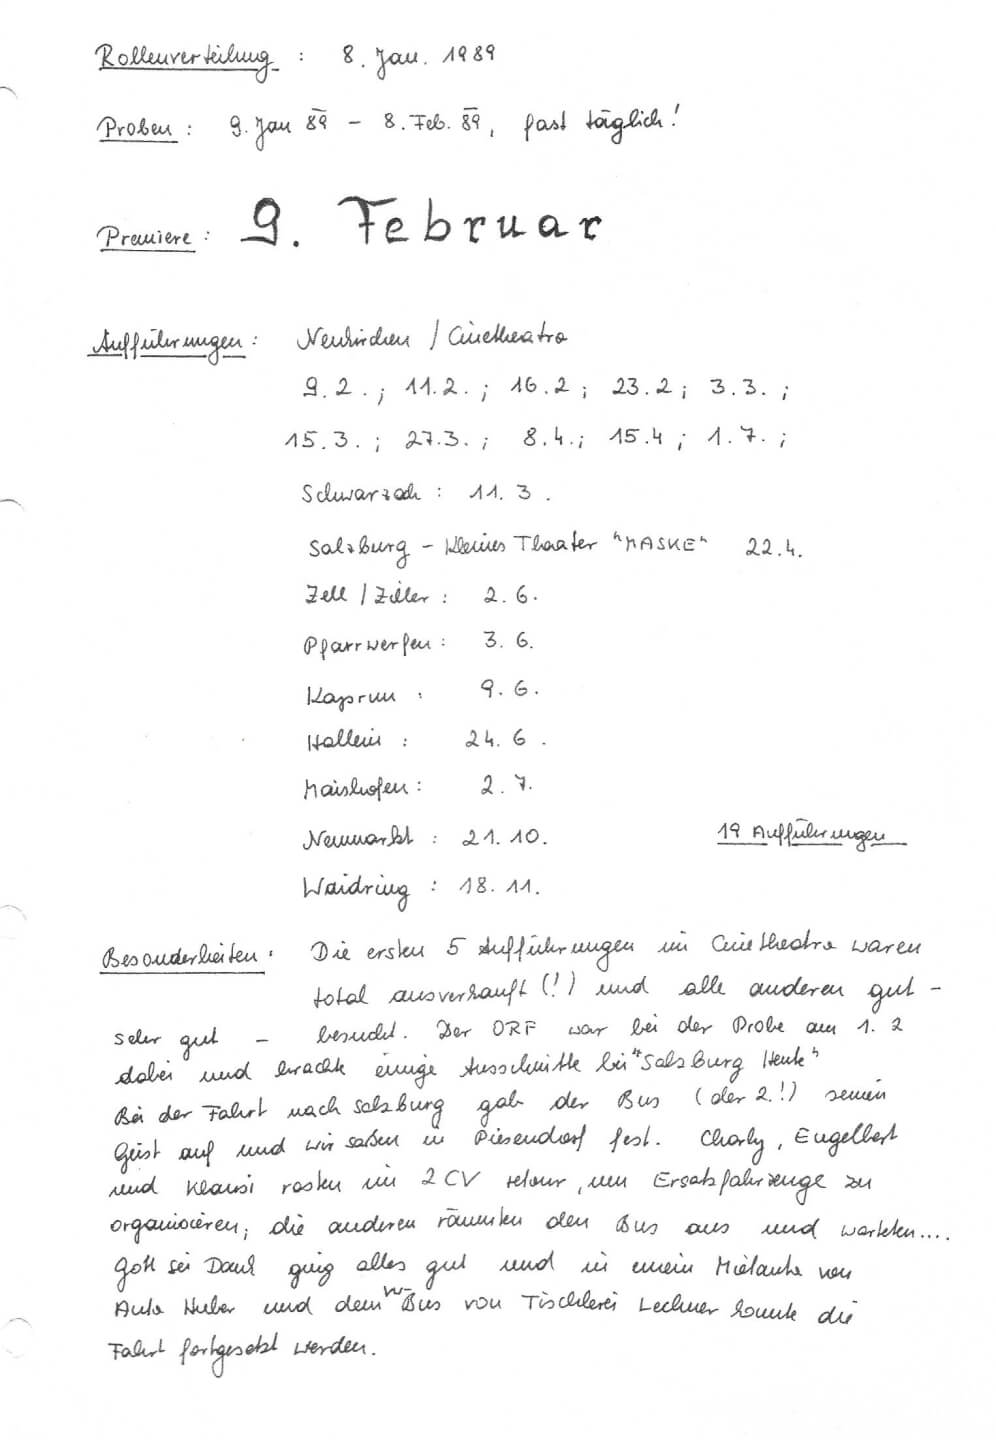 Rollenverteilung : 8. Jan. 1989
Proben : 9. Jan 89 – 8. Feb. 89, fast täglich!
Premiere : 9. Februar
Aufführungen : Neukirchen / Cinetheatro
9.2. ; 11.2. ; 16.2 ; 23.2 ; 3.3. ;
15.3. ; 27.3. ; 8.4. ; 15.4 ; 1.7. ;
Schwarzach : 11.3.
Salzburg – Kleines Theater "MASKE" 22.4.
Zell / Ziller : 2.6.
Pfarrwerfen : 3.6.
Kaprun : 9.6.
Hallein : 24.6.
Maishofen : 2.7.
Neumarkt : 21.10. 19 Aufführungen
Waidring : 18.11.
Besonderheiten : Die ersten 5 Aufführungen im Cinetheatro waren
total ausverkauft (!) und alle anderen gut –
sehr gut – besucht. Der ORF war bei der Probe am 1.2
dabei und brachte einige Ausschnitte bei "Salzburg Heute"
Bei der Fahrt nach Salzburg gab der Bus (der 2.!) seinen
Geist auf und wir saßen in Piesendorf fest. Charly, Engelbert
und Klausi rasten im 2CV retour, um Ersatzfahrzeuge zu
organisieren; die anderen räumten den Bus aus und warteten....
Gott sei Dank ging alles gut und in einem Mietauto von
Auto Huber und dem VW-Bus von Tischlerei Lechner konnte die
Fahrt fortgesetzt werden.